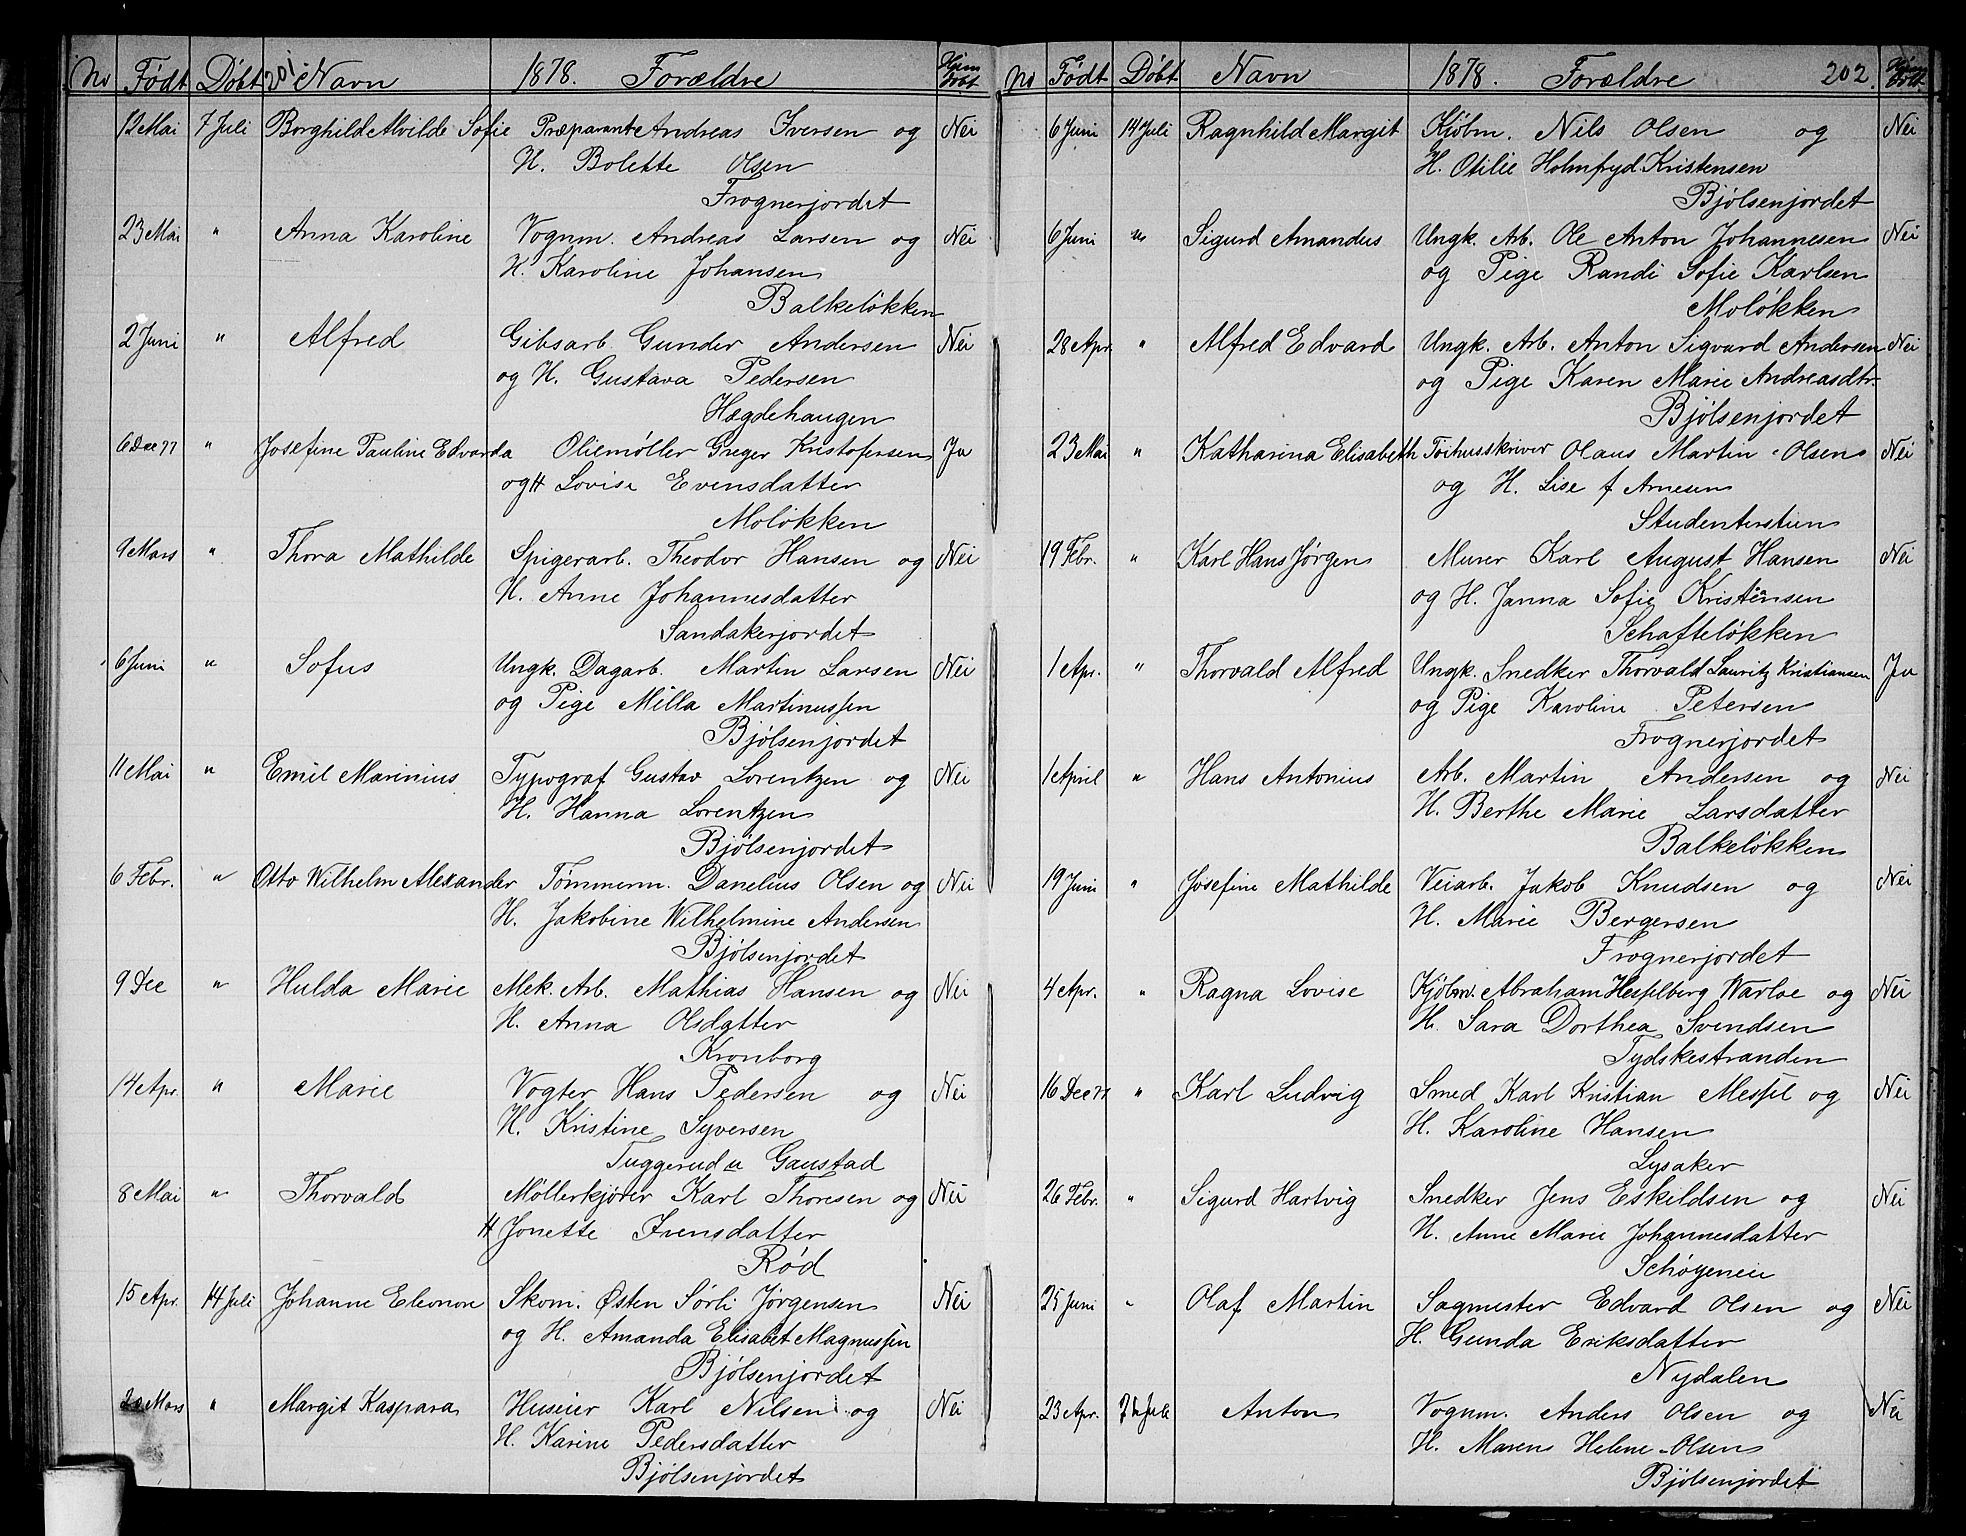 No Født Døbt 201 Navn 1878. Forældre Hjem døbt
12 Mai 7 Juli Borghild Alvilde Sofie Præparante Andreas Iversen og Nei
H. Bolette Olsen
Frognerjordet
23 Mai " Anna Karoline Vognm. Andreas Larsen og Nei
H. Karoline Johansen
Balkeløkken
2 Juni " Alfred Gibsarb. Gunder Andersen Nei
og H. Gustava Pedersen
Hægdehaugen
6 Dec 77 " Josefine Pauline Edvarda Oliemøller Greger Kristofersen Ja
og H Lovise Evensdatter
Moløkken
9 Mars " Thora Mathilde Spigerarb. Theodor Hansen og Nei
H. Anne Johannesdatter
Sandakerjordet
6 Juni " Sofus Ungk. Dagarb. Martin Larsen Nei
og Pige Milla Martinussen
Bjølsenjordet
11 Mai " Emil Marinius Typograf Gustav Lorentzen og Nei
H. Hanna Lorentzen
Bjølsenjordet
6 Febr. " Otto Wilhelm Alexander Tømmerm. Danelius Olsen og Nei
H. Jakobine Wilhelmine Andersen
Bjølsenjordet
9 Dec " Hulda Marie Mek. Arb. Mathias Hansen og Nei
H. Anna Olsdatter
Kronborg
14 Apr. " Marie Vogter Hans Pedersen og Nei
H. Kristine Syversen
Tuggerud u Gaustad
8 Mai " Thorvald Møllerkjører Karl Thoresen og Nei
H Jonette Ivensdatter
Rød
15 Apr. 14 Juli Johanne Eleonore Skom. Østen Sørli Jørgensen Nei
og H. Amanda Elisabet Magnussen
Bjølsenjordet
20 Mars " Margit Kaspara Huseier Karl Nilsen og Nei
H. Karine Pedersdatter
Bjølsenjordet
No Født Døbt Navn 1878. Forældre 202. Hjem døbt.
6 Juni 14 Juli Ragnhild Margit Kjøbm. Nils Olsen og Nei
H. Otilie Holmfryd Kristensen
Bjølsenjordet
6 Juni " Sigurd Amandus Ungk. Arb. Ole Anton Johannesen Nei
og Pige Randi Sofie Karlsen
Moløkken
28 Apr. " Alfred Edvard Ungk. Arb. Anton Sigvard Andersen Nei
og Pige Karen Marie Andreasdtr
Bjølsenjordet
23 Mai " Katharina Elisabeth Tøihusskriver Olaus Martin Olsen Nei
og H. Lise f Arnesen
Studenterstien
19 Febr. " Karl Hans Jørgen Murer Karl August Hansen Nei
og H. Janna Sofie Kristensen
Schafteløkken
1 Apr. " Thorvald Alfred Ungk. Snedker Thorvald Lauritz Kristiansen Ja
og Pige Karoline Petersen
Frognerjordet
1 April " Hans Antonius Arb. Martin Andersen og Nei
H. Berthe Marie Larsdatter
Balkeløkken
19 Juni " Josefine Mathilde Veiarb. Jakob Knudsen og Nei
H. Marie Bergersen
Frognerjordet
4 Apr. " Ragna Lovise Kjøbm. Abraham Hesselberg Warloe og Nei
H. Sara Dorthea Svendsen
Tydskestranden
16 Dec 77 " Karl Ludvig Smed Karl Kristian Messel og Nei
H. Karoline Hansen
Lysaker
26 Febr. " Sigurd Hartvig Snedker Jens Eskildsen og Nei
H. Anne Marie Johannesdatter
Schøyeneie
25 Juni " Olaf Martin Sagmester Edvard Olsen og Nei
H. Gunda Eriksdatter
Nydalen
23 Apr. Juli Anton Vognm. Anders Olsen og Nei
H. Maren Helene Olsen
Bjølsenjordet